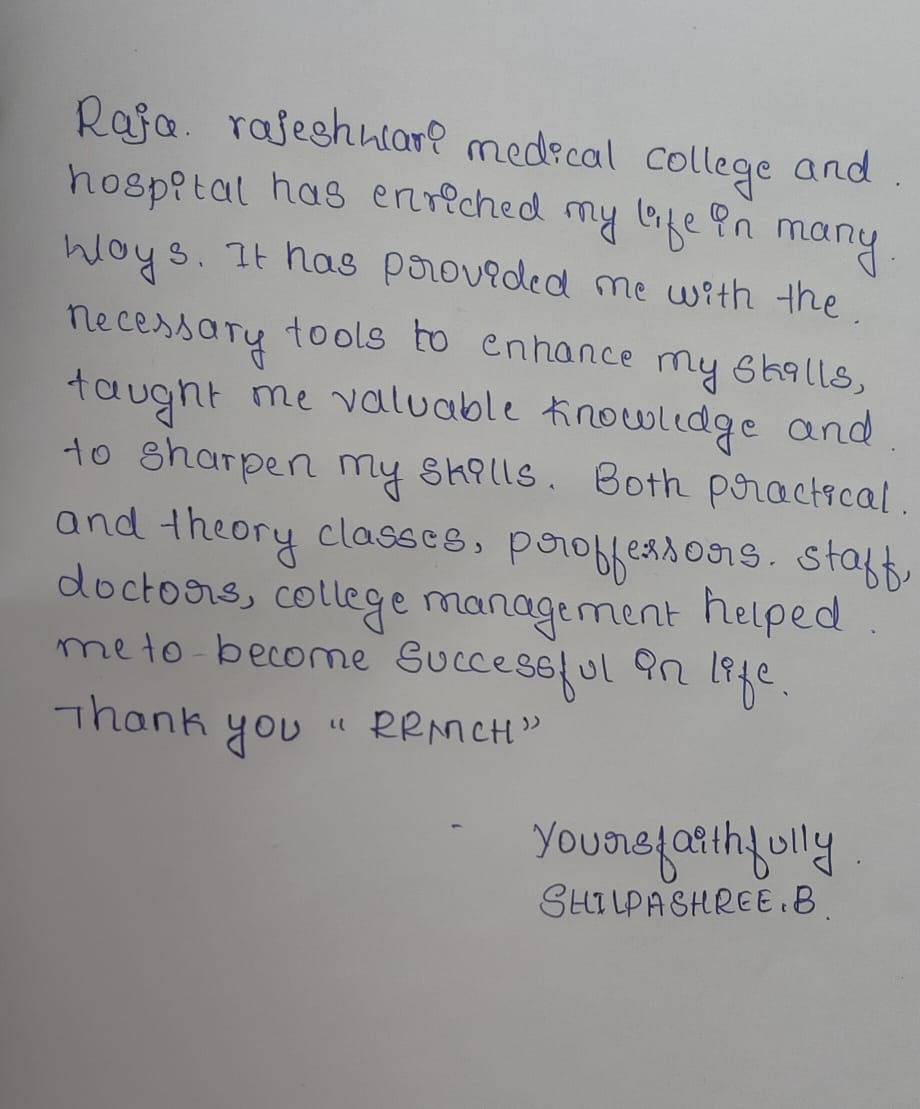 Raja. rajeshwari medical college and.
hospital has enriched my life in many.
ways. It has provided me with the.
necessary tools to enhance my skills,
taught me valuable knowledge and.
to sharpen my skills. Both practical.
and theory classes, proffessors. staff,
doctors, college management helped.
me to become successful in life.
Thank you "RRMCH"
Yours faithfully.
SHILPASHREE.B.